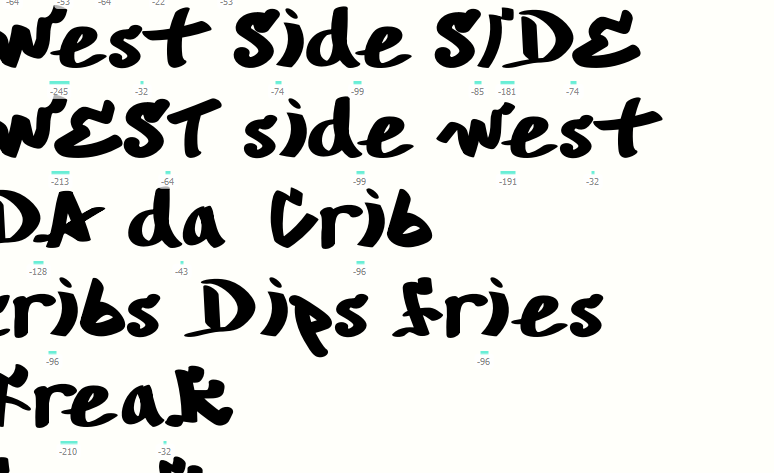 -64 -53 -64 -22 -53
West Side SIDE
-245 -32 -74 -99 -85 -181 -74
WEST side west
-213 -64 -99 -191 -32
DA da Crib
-128 -43 -96
cribs Dips fries
-96 -96
freak
-210 -32